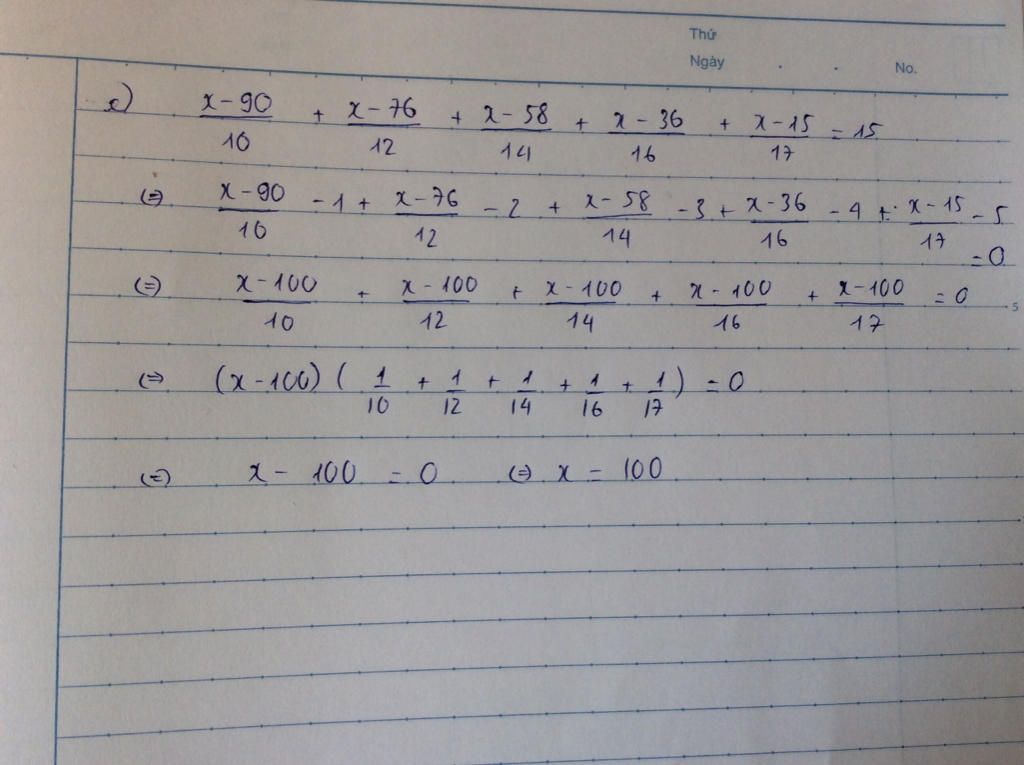 Thứ
Ngày . . No.
c) (x-90)/10 + (x-76)/12 + (x-58)/14 + (x-36)/16 + (x-15)/17 = 15
(=) (x-90)/10 - 1 + (x-76)/12 - 2 + (x-58)/14 - 3 + (x-36)/16 - 4 + (x-15)/17 - 5
= 0
(=) (x-100)/10 + (x-100)/12 + (x-100)/14 + (x-100)/16 + (x-100)/17 = 0
5
(=) (x-100) ( 1/10 + 1/12 + 1/14 + 1/16 + 1/17 ) = 0
(=) x - 100 = 0 (=) x = 100